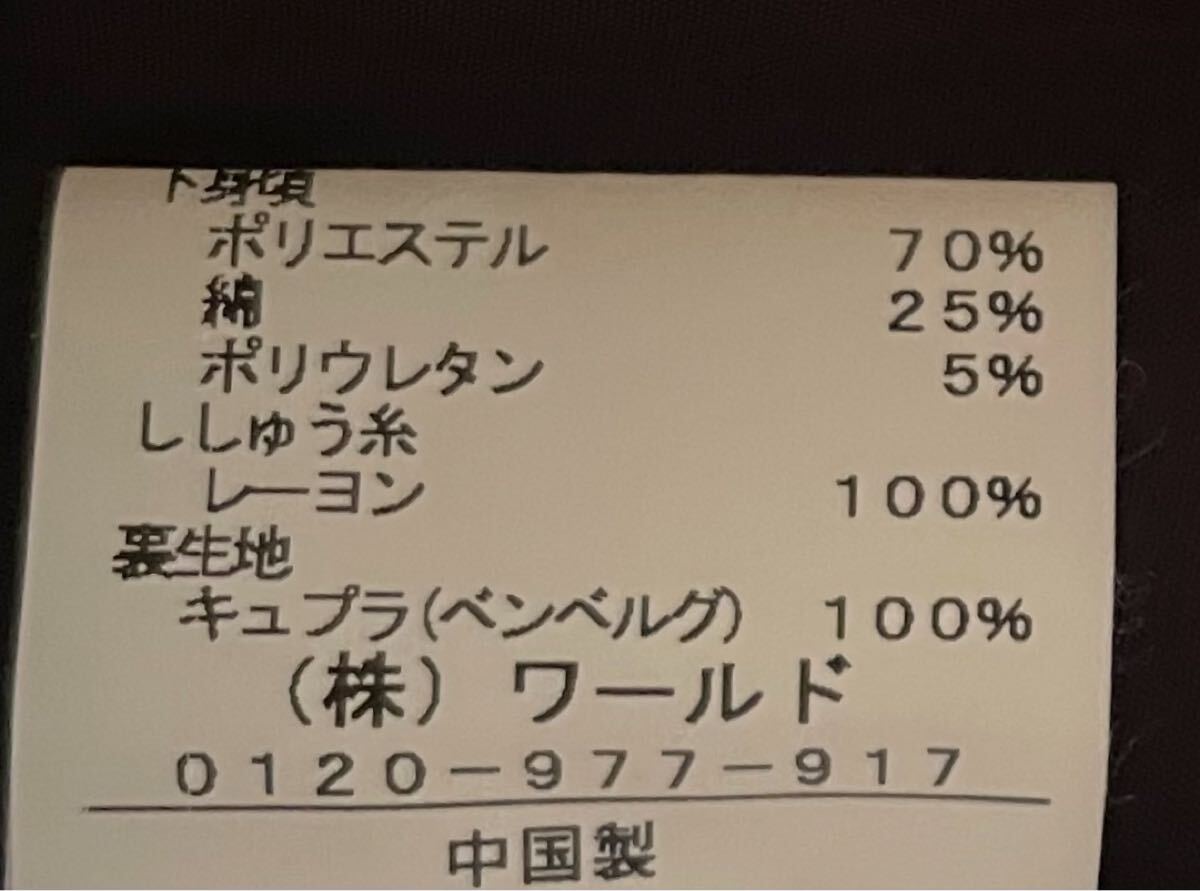 下身頃
ポリエステル 70%
綿 25%
ポリウレタン 5%
ししゅう糸
レーヨン 100%
裏生地
キュプラ(ベンベルグ) 100%
(株) ワールド
0120-977-917
中国製